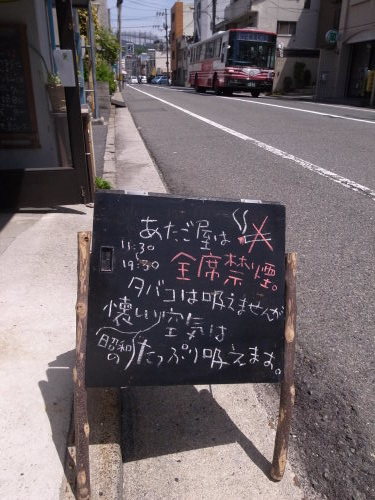 あたご屋は
11:30
19:30
全席禁煙。
タバコは吸えませんが
懐しい空気は
昭和の
たっぷり吸えます。